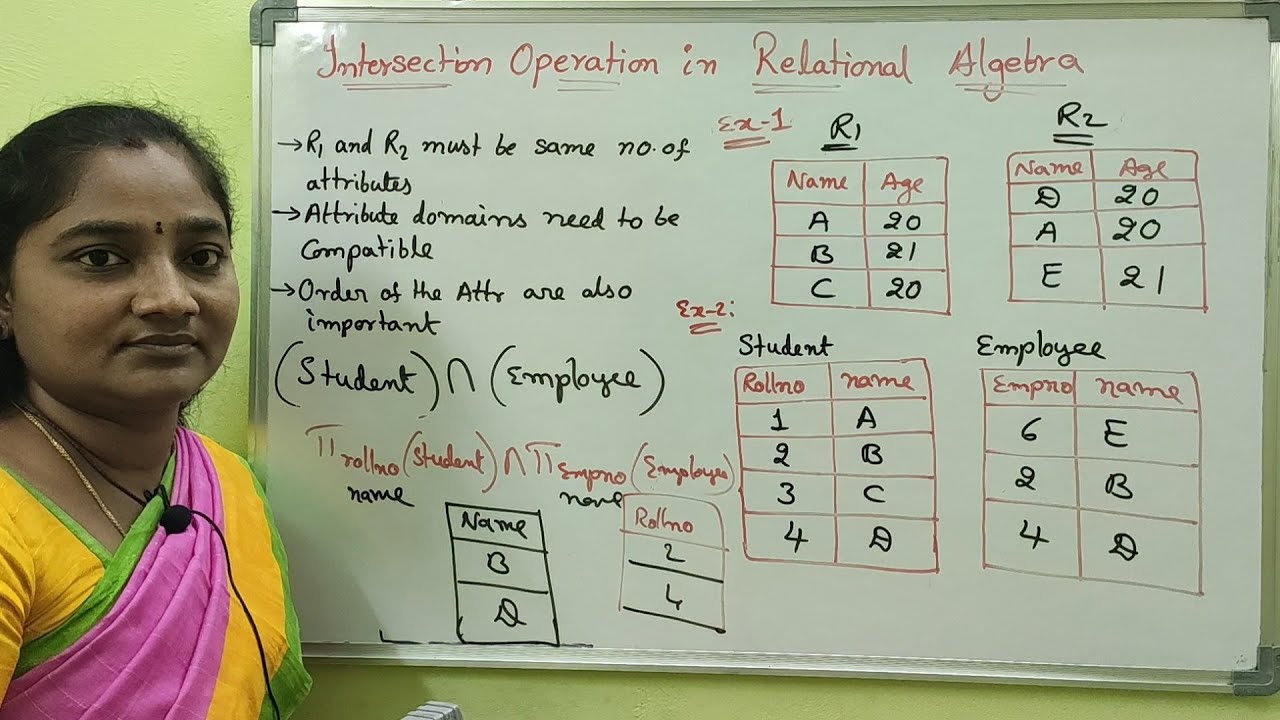 Intersection Operation in Relational Algebra
→ R1 and R2 must be same no. of
attributes
→ Attribute domains need to be
Compatible
→ Order of the Attr are also
important
(Student) ∩ (Employee)
π rollno (Student) ∩ π Empno (Employee)
name name
Name
B
D
Rollno
2
4
Ex-1
R1
Name Age
A 20
B 21
C 20
R2
Name Age
D 20
A 20
E 21
Ex-2:
Student
Rollno name
1 A
2 B
3 C
4 D
Employee
Empno name
6 E
2 B
4 D